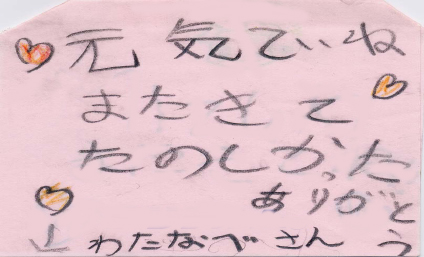 元気でいね
またきて
たのしかった
ありがとう
わたなべさん